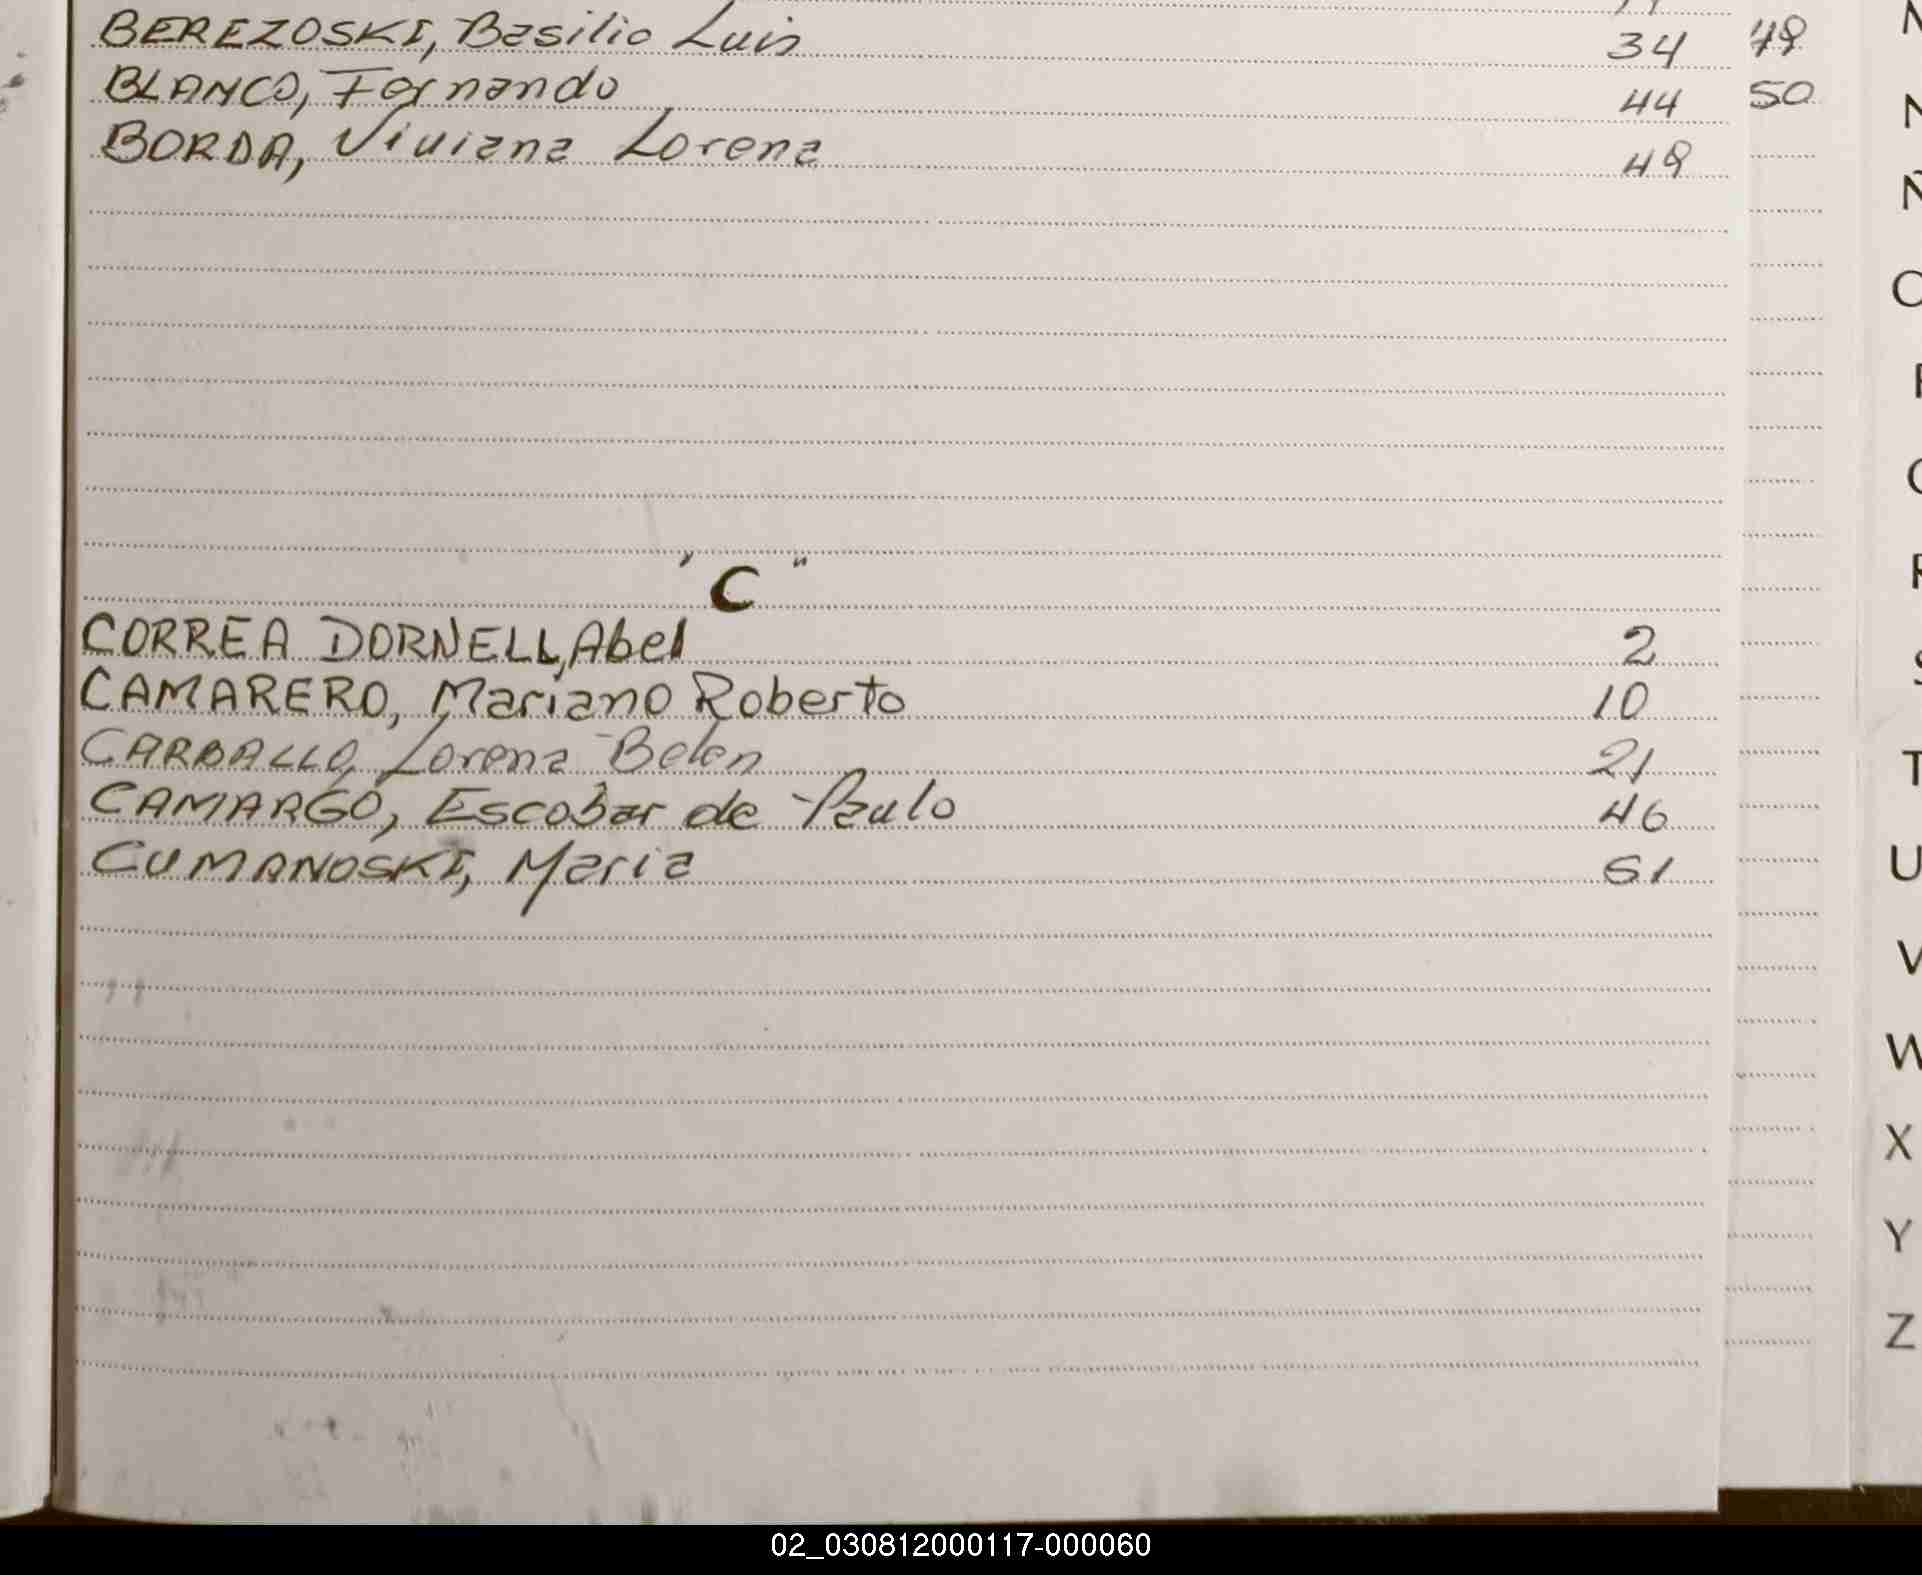 BEREZOSKI, Basilio Luis 34
BLANCO, Fernando 44
BORDA, Viviana Lorena 48
"C"
CORREA DORNELL, Abel 2
CAMARERO, Mariano Roberto 10
CARBALLO, Lorena Belen 21
CAMARGO, Escobar de Paulo 46
CUMANOSKI, Maria 51
48
50
N
Ñ
O
P
Q
R
S
T
U
V
W
X
Y
Z
02_030812000117-000060